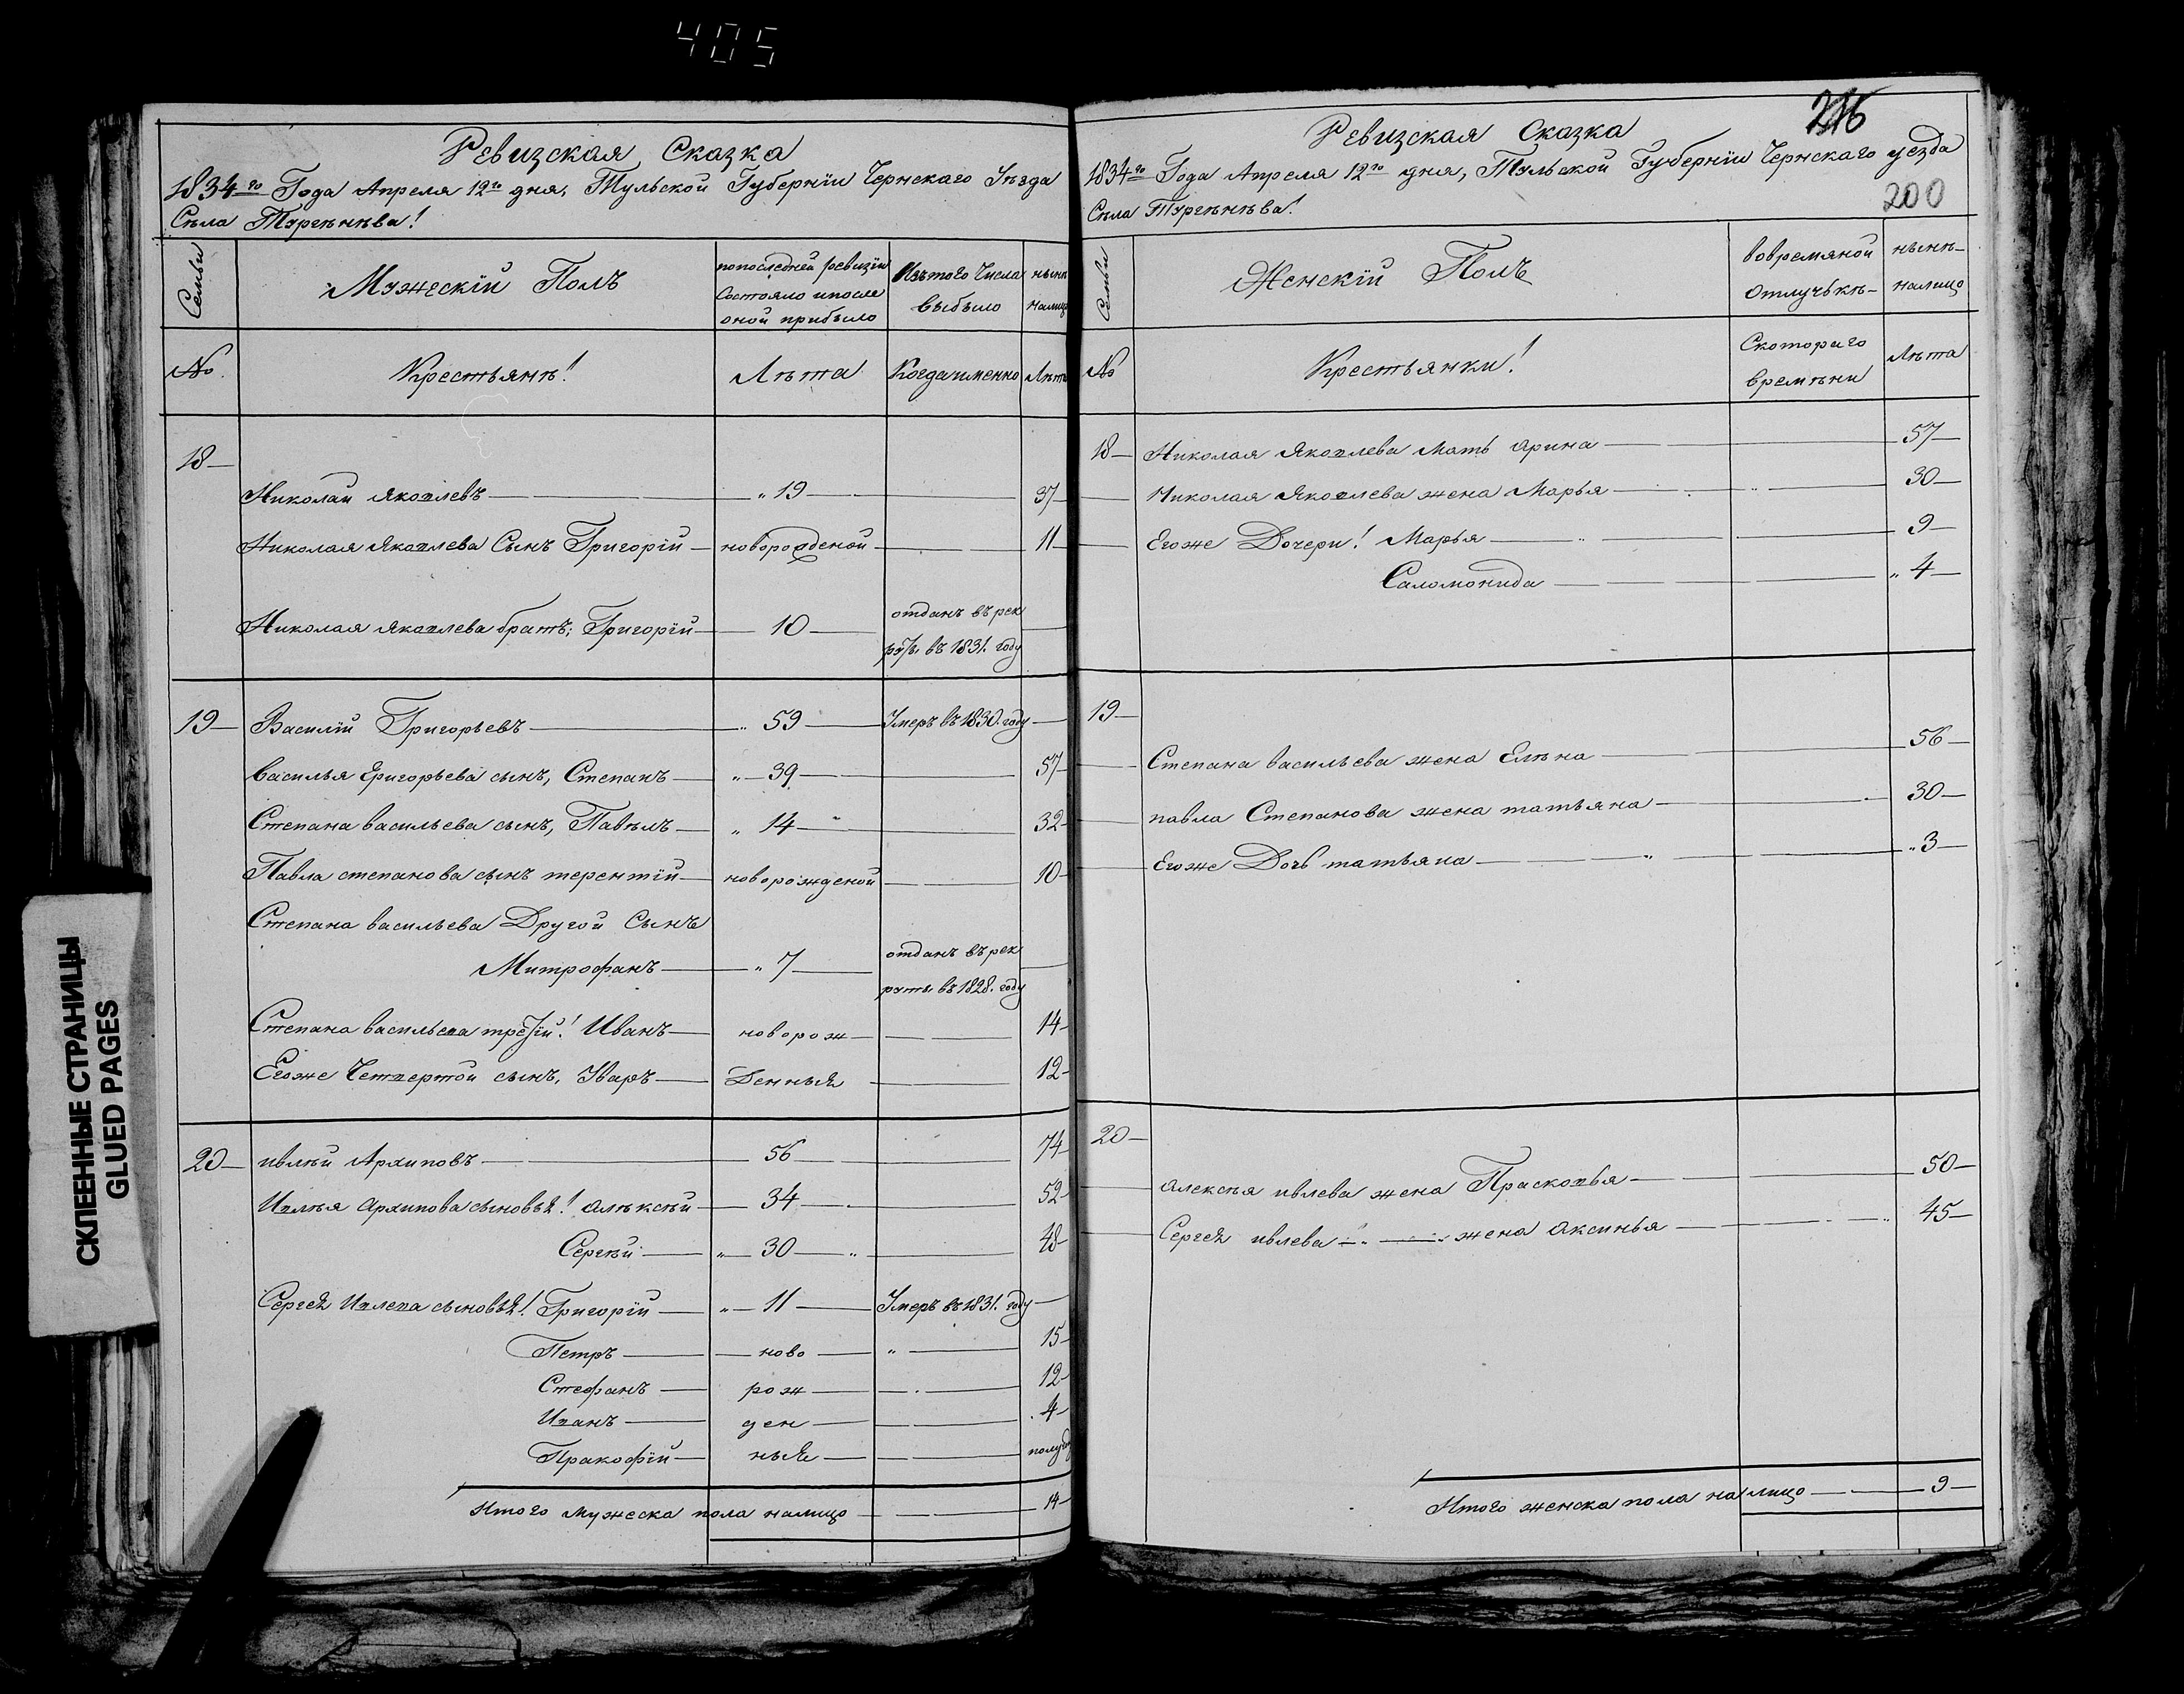 405
Ревизская Сказка
1834го Года Апреля 12го дня, Тульской Губернïи Чернскаго Уѣзда
Сѣла Тургѣнѣва!
Семьи
Мужескïй Полъ
попоследней ревизïи
Состояло ипосле
оной прибыло
Изътого Числа
выбыло
нынѣ
налицо
№
Крестьянѣ!
Лѣта
Когдаименно
Лѣта
18
Николай Яковлевъ — „ 19 — 37
Николая Яковлева Сынъ Григорïй — новорожденой — 11
Николая Яковлева братъ; Григорïй — 10 — отданъ въ рек
руты въ 1831. году
19 — Василïй Григорьевъ — „ 59 — Умеръ въ 1830. году
Василья Григорьева сынъ, Степанъ — „ 39 — 57
Степана васильева сынъ, Павѣлъ — „ 14 — 32
Павла степанова сынъ терентïй — новорожденой — 10
Степана васильева Другой Сынъ
Митрофанъ — „ 7 — отданъ въ рек
руты въ 1828. году
Степана васильева третïй! Иванъ — новорож — 14
Егоже Четвертой сынъ, Уваръ — Денныя — 12
20 — ивлѣй Архиповъ — 56 — 74
Ивлѣя Архипова сыновья! алѣксѣй — 34 — 52
Сергѣй — „ 30 — „ 48
Сергея Ивлева сыновья! Григорïй — „ 11 — Умеръ въ 1831. году
Петръ — ново — „ 15
Стефанъ — рож — 12
Иванъ — ден — 4
Пракофïй — ныя — полугод
Итого мужеска пола налицо — 14
216
Ревизская Сказка
1834го Года Апреля 12го дня, Тульской Губернïи Чернскаго уезда
200
Сѣла Тургѣнѣва!
Семьи
Женскïй Полъ
вовремяной
Отлучькѣ
нынѣ
налицо
№
Крестьянки!
Скотораго
времѣни
Лѣта
18 — Николая Яковлева Мать арина — 57
Николая Яковлева жена Марья — 30
Егоже Дочери! Марья — 9
Саломонида — „ 4
19
Степана васильева жена Елѣна — 56
павла Степанова жена татьяна — 30
Егоже Дочь татьяна — „ 3
20
алексѣя ивлева жена Прасковья — 50
Сергея ивлева — жена аксинья — 45
Итого женска пола налицо — 9
СКЛЕЕННЫЕ СТРАНИЦЫ
GLUED PAGES